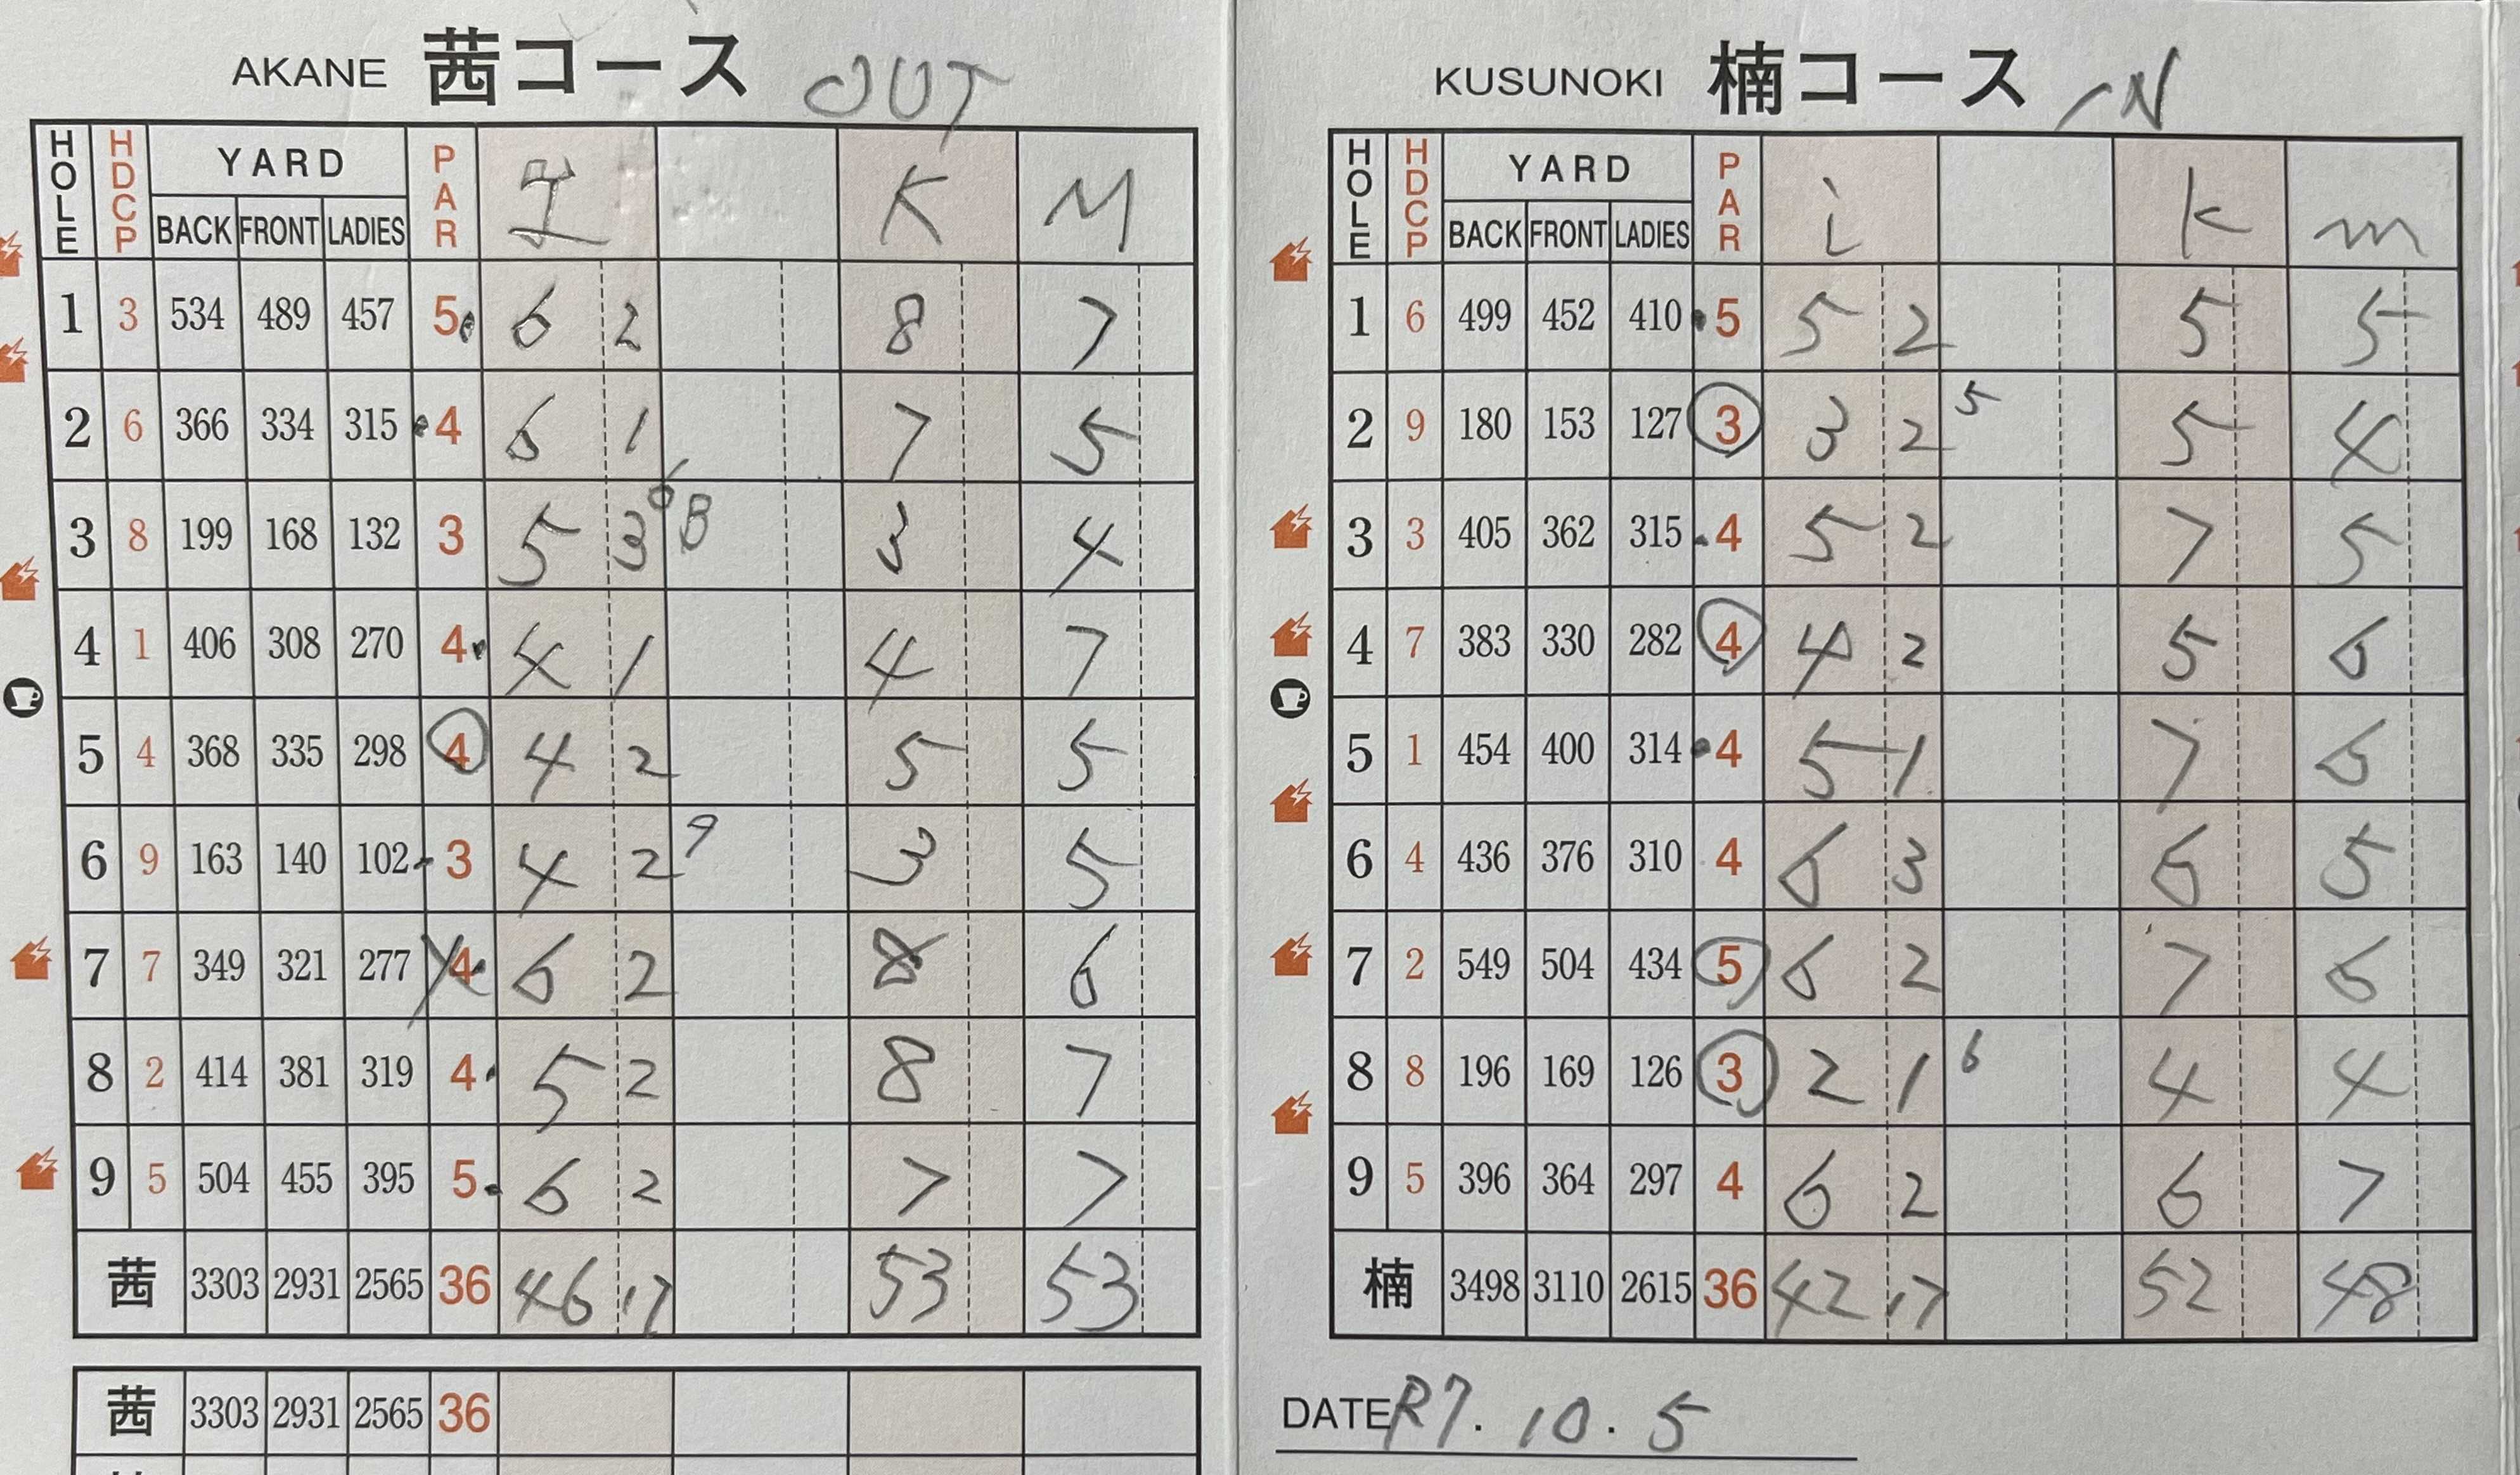 AKANE 茜コース OUT
HOLE HDCP YARD PAR I K M
BACK FRONT LADIES
1 3 534 489 457 5 6 2 8 7
2 6 366 334 315 4 6 1 7 5
3 8 199 168 132 3 5 3 3 4
4 1 406 308 270 4 4 1 4 7
5 4 368 335 298 4 4 2 5 5
6 9 163 140 102 3 4 2 9 3 5
7 7 349 321 277 4 6 2 8 6
8 2 414 381 319 4 5 2 8 7
9 5 504 455 395 5 6 2 7 7
茜 3303 2931 2565 36 46 17 53 53
茜 3303 2931 2565 36
KUSUNOKI 楠コース IN
HOLE HDCP YARD PAR i K m
BACK FRONT LADIES
1 6 499 452 410 5 5 2 5 5
2 9 180 153 127 3 3 2 5 5 4
3 3 405 362 315 4 5 2 7 5
4 7 383 330 282 4 4 2 5 6
5 1 454 400 314 4 5 1 7 6
6 4 436 376 310 4 6 3 6 5
7 2 549 504 434 5 6 2 7 6
8 8 196 169 126 3 2 1 6 4 4
9 5 396 364 297 4 6 2 6 7
楠 3498 3110 2615 36 42 17 52 48
DATE R7.10.5